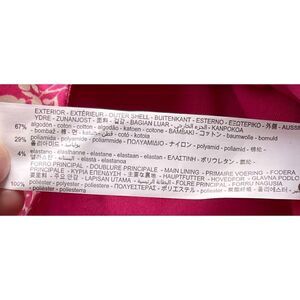 EXTERIOR - EXTÉRIEUR - OUTER SHELL - BUITENKANT - ESTERNO - ΕΞΩΤΕΡΙΚΟ - 外側 - AUSSE
YDRE - ZUNANJOST - 面料 - 겉감 - BAGIAN LUAR - الجزء الخارجي - КАПРОКОА
67% algodón - coton - cotton - algodão - katoen - cotone - ΒΑΜΒΑΚΙ - コットン - baumwolle - bomuld
- bombaž - 棉 - 면 - katun - قطن
29% poliamida - polyamide - polyamide - ΠΟΛΥΑΜΙΔΙΟ - ナイロン - polyamid - poliamid - 锦纶 -
폴리아미드 - poliamida -
4% elastano - élasthanne - elastane - elastaan - elastan - ΕΛΑΣΤΙΝΗ - ポリウレタン - elastan - 氨纶 -
FORRO PRINCIPAL - DOUBLURE PRINCIPALE - MAIN LINING - PRIMAIRE VOERING - FODERA
PRINCIPALE - ΚΥΡΙΑ ΕΠΕΝΔΥΣΗ - 主要な裏地 - HAUPTFUTTER - HOVEDFOR - GLAVNA PODLO
- 主要里料 - 주요 안감 - LAPISAN UTAMA - البطانة الرئيسية - FOLRE PRINCIPAL - FORRU NAGUSIA
100% poliéster - polyester - polyester - poliestere - ΠΟΛΥΕΣΤΕΡΑΣ - ポリエステル - polyester - poliester - 聚酯纤维 - 폴리에스터 -
poliester -